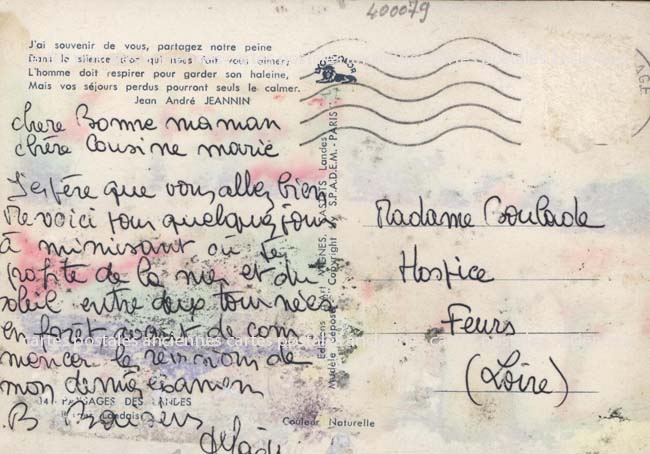 400079
J'ai souvenir de vous, partagez notre peine
Dans le silence qui nous fait vous aimer,
L'homme doit respirer pour garder son haleine,
Mais vos séjours perdus pourront seuls le calmer.
Jean André JEANNIN
chère Bonne maman
chère Cousine marie
J'espère que vous allez bien
Me voici pour quelques jours
à mimisant où je
profite de la mer et du
soleil entre deux tournées
en forêt avant de com
mencer la révision de
mon dernier examen
B Baisers
PAYSAGES DES LANDES
Landais
Couleur Naturelle
Editions VIGNES, Landes
Modèle déposé Copyright S.P.A.D.E.M. PARIS
Madame Coulade
Hospice
Feurs
(Loire)
cartes postales anciennes cartes postales anciennes